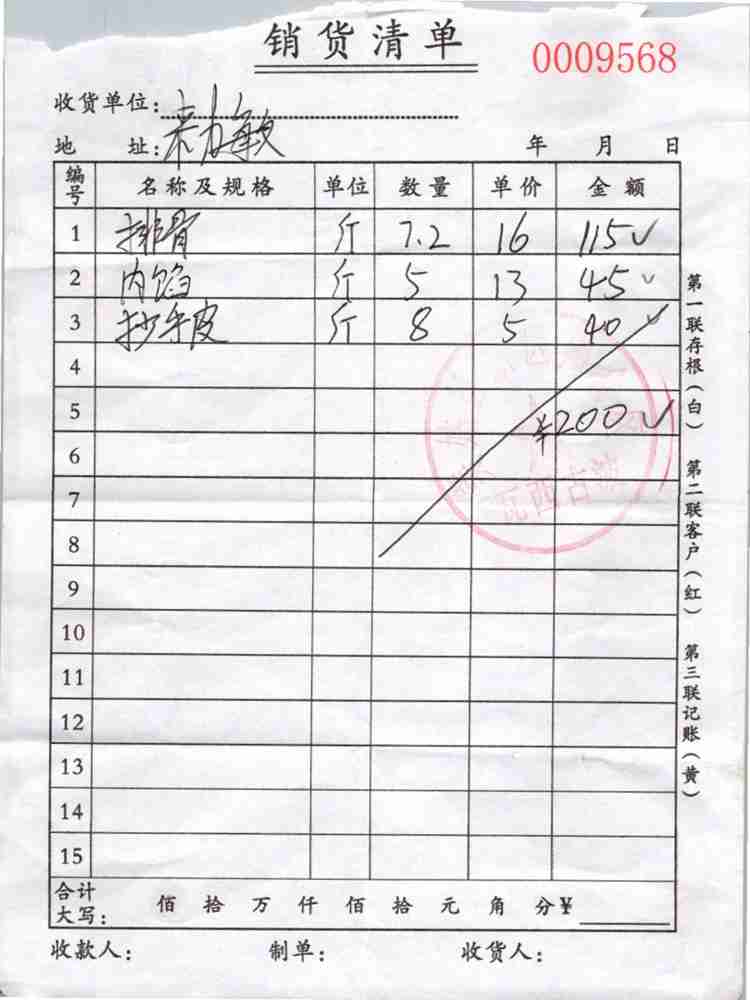 销货清单
0009568
收货单位:
地 址:
年 月 日
编号 名称及规格 单位 数量 单价 金额
1 排骨 斤 7.2 16 115✓
2 肉馅 斤 5 13 45✓
3 抄手皮 斤 8 5 40✓
4
5 ¥200✓
6
7
8
9
10
11
12
13
14
15
合计大写: 佰 拾 万 仟 佰 拾 元 角 分¥
收款人: 制单: 收货人:
第一联存根(白) 第二联客户(红) 第三联记账(黄)